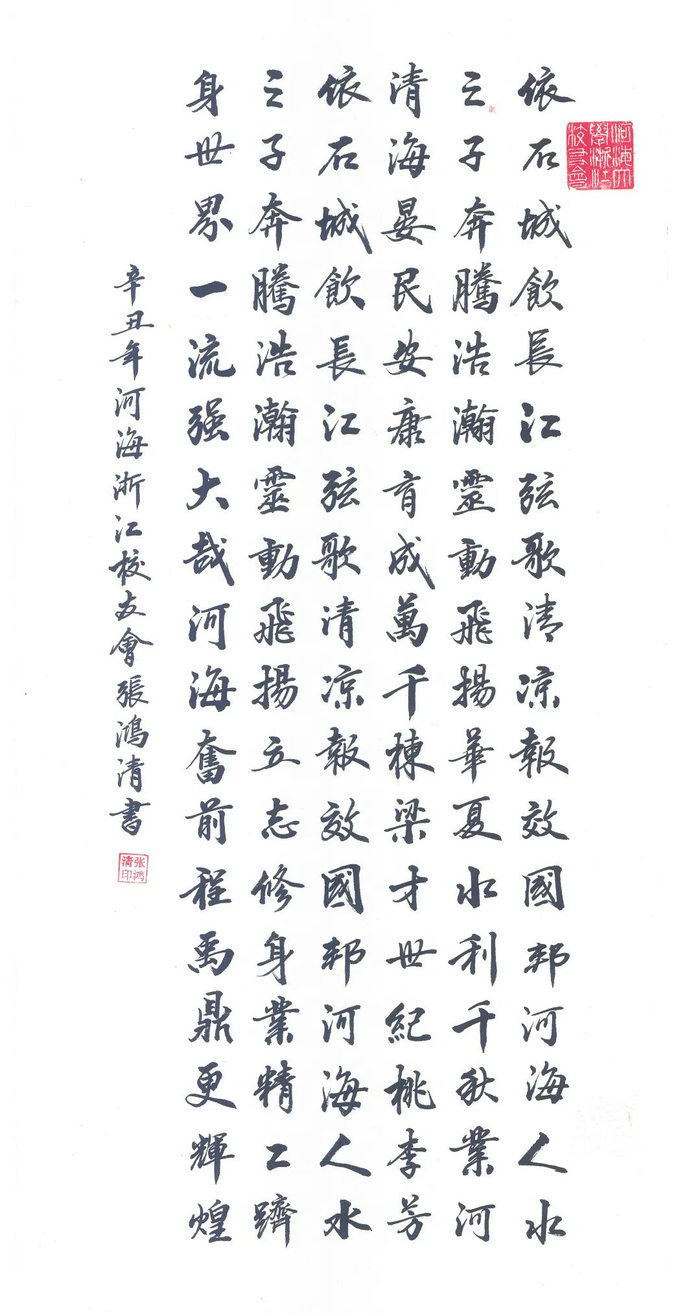 依石城飲長江弦歌清凉報效國邦河海人水
之子奔騰浩瀚靈動飛揚華夏水利千秋業河
清海晏民安康育成萬千棟梁才世紀桃李芳
依石城飲長江弦歌清凉報效國邦河海人水
之子奔騰浩瀚靈動飛揚立志修身業精工躋
身世界一流强大哉河海奮前程禹鼎更輝煌
辛丑年河海浙江校友會張鴻清書
河海大學浙江校友會
张鸿清印